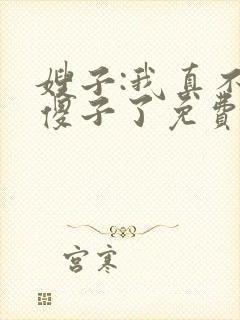 嫂子:我真不
傻子了免费
宫寒